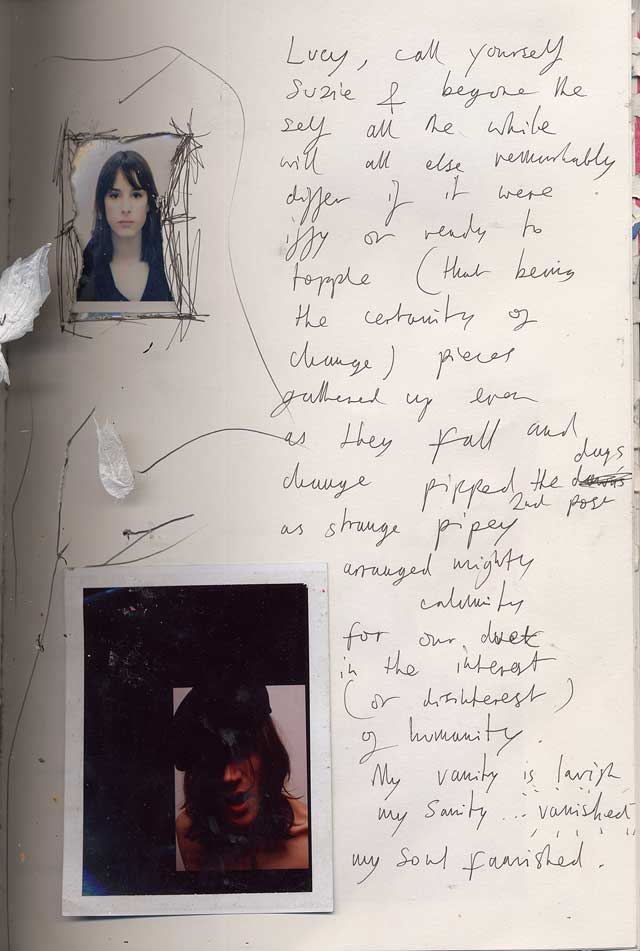 Lucy, call yourself
Suzie & begone the
self all the while
will all else remarkably
differ if it were
iffy or ready to
topple (that being
the certainity of
change) pieces
gathered up even
as they fall and
days
change pipped the
2nd post
as strange pipey
arranged mighty
for our duet
in the interest
(or disinterest)
of humanity.
My vanity is lavish
my sanity... vanished
my soul famished.